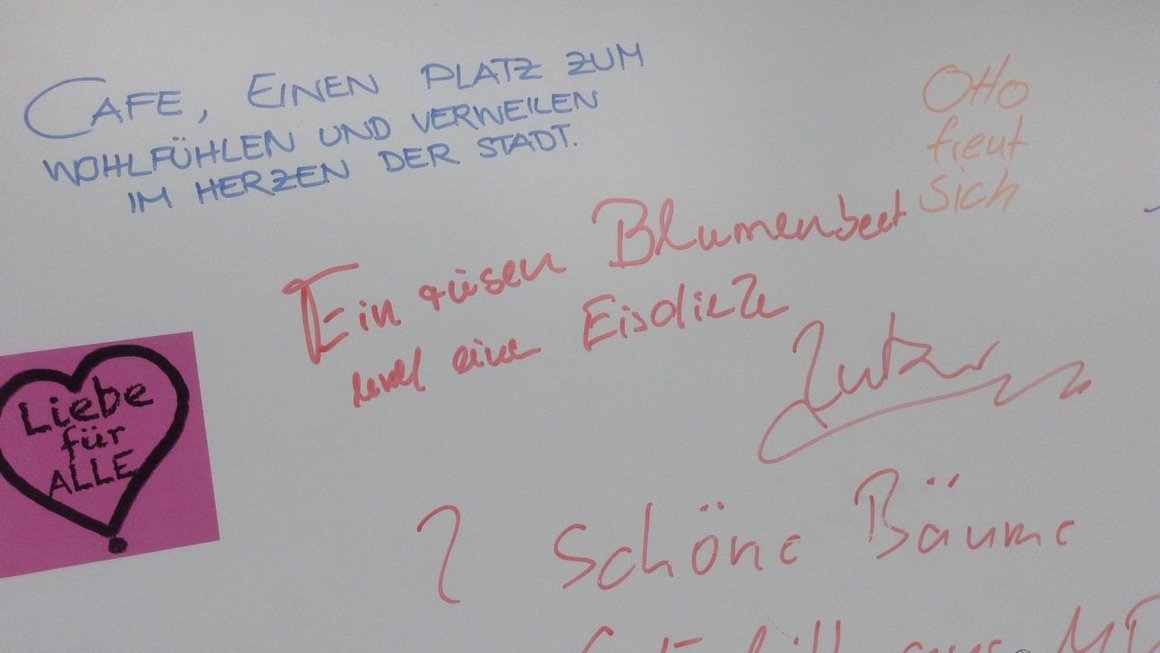 CAFE, EINEN PLATZ ZUM
WOHLFÜHLEN UND VERWEILEN
IM HERZEN DER STADT.
Otto
freut
sich
Ein riesen Blumenbeet
und eine Eisdiele
Liebe
für
ALLE
? Schöne Bäume
aus MD